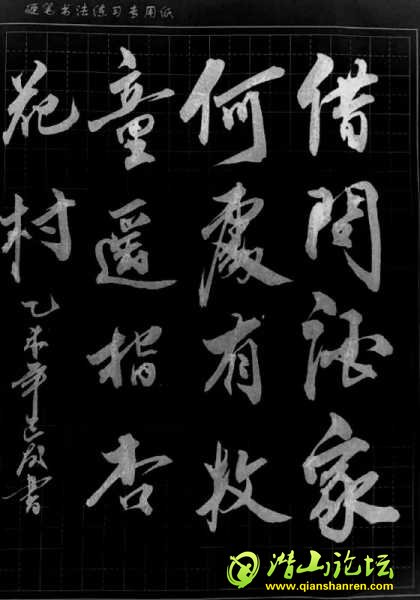 硬笔书法练习专用纸
借問酒家
何處有牧
童遥指杏
花村
乙未年書
潜山论坛
www.qianshanren.com